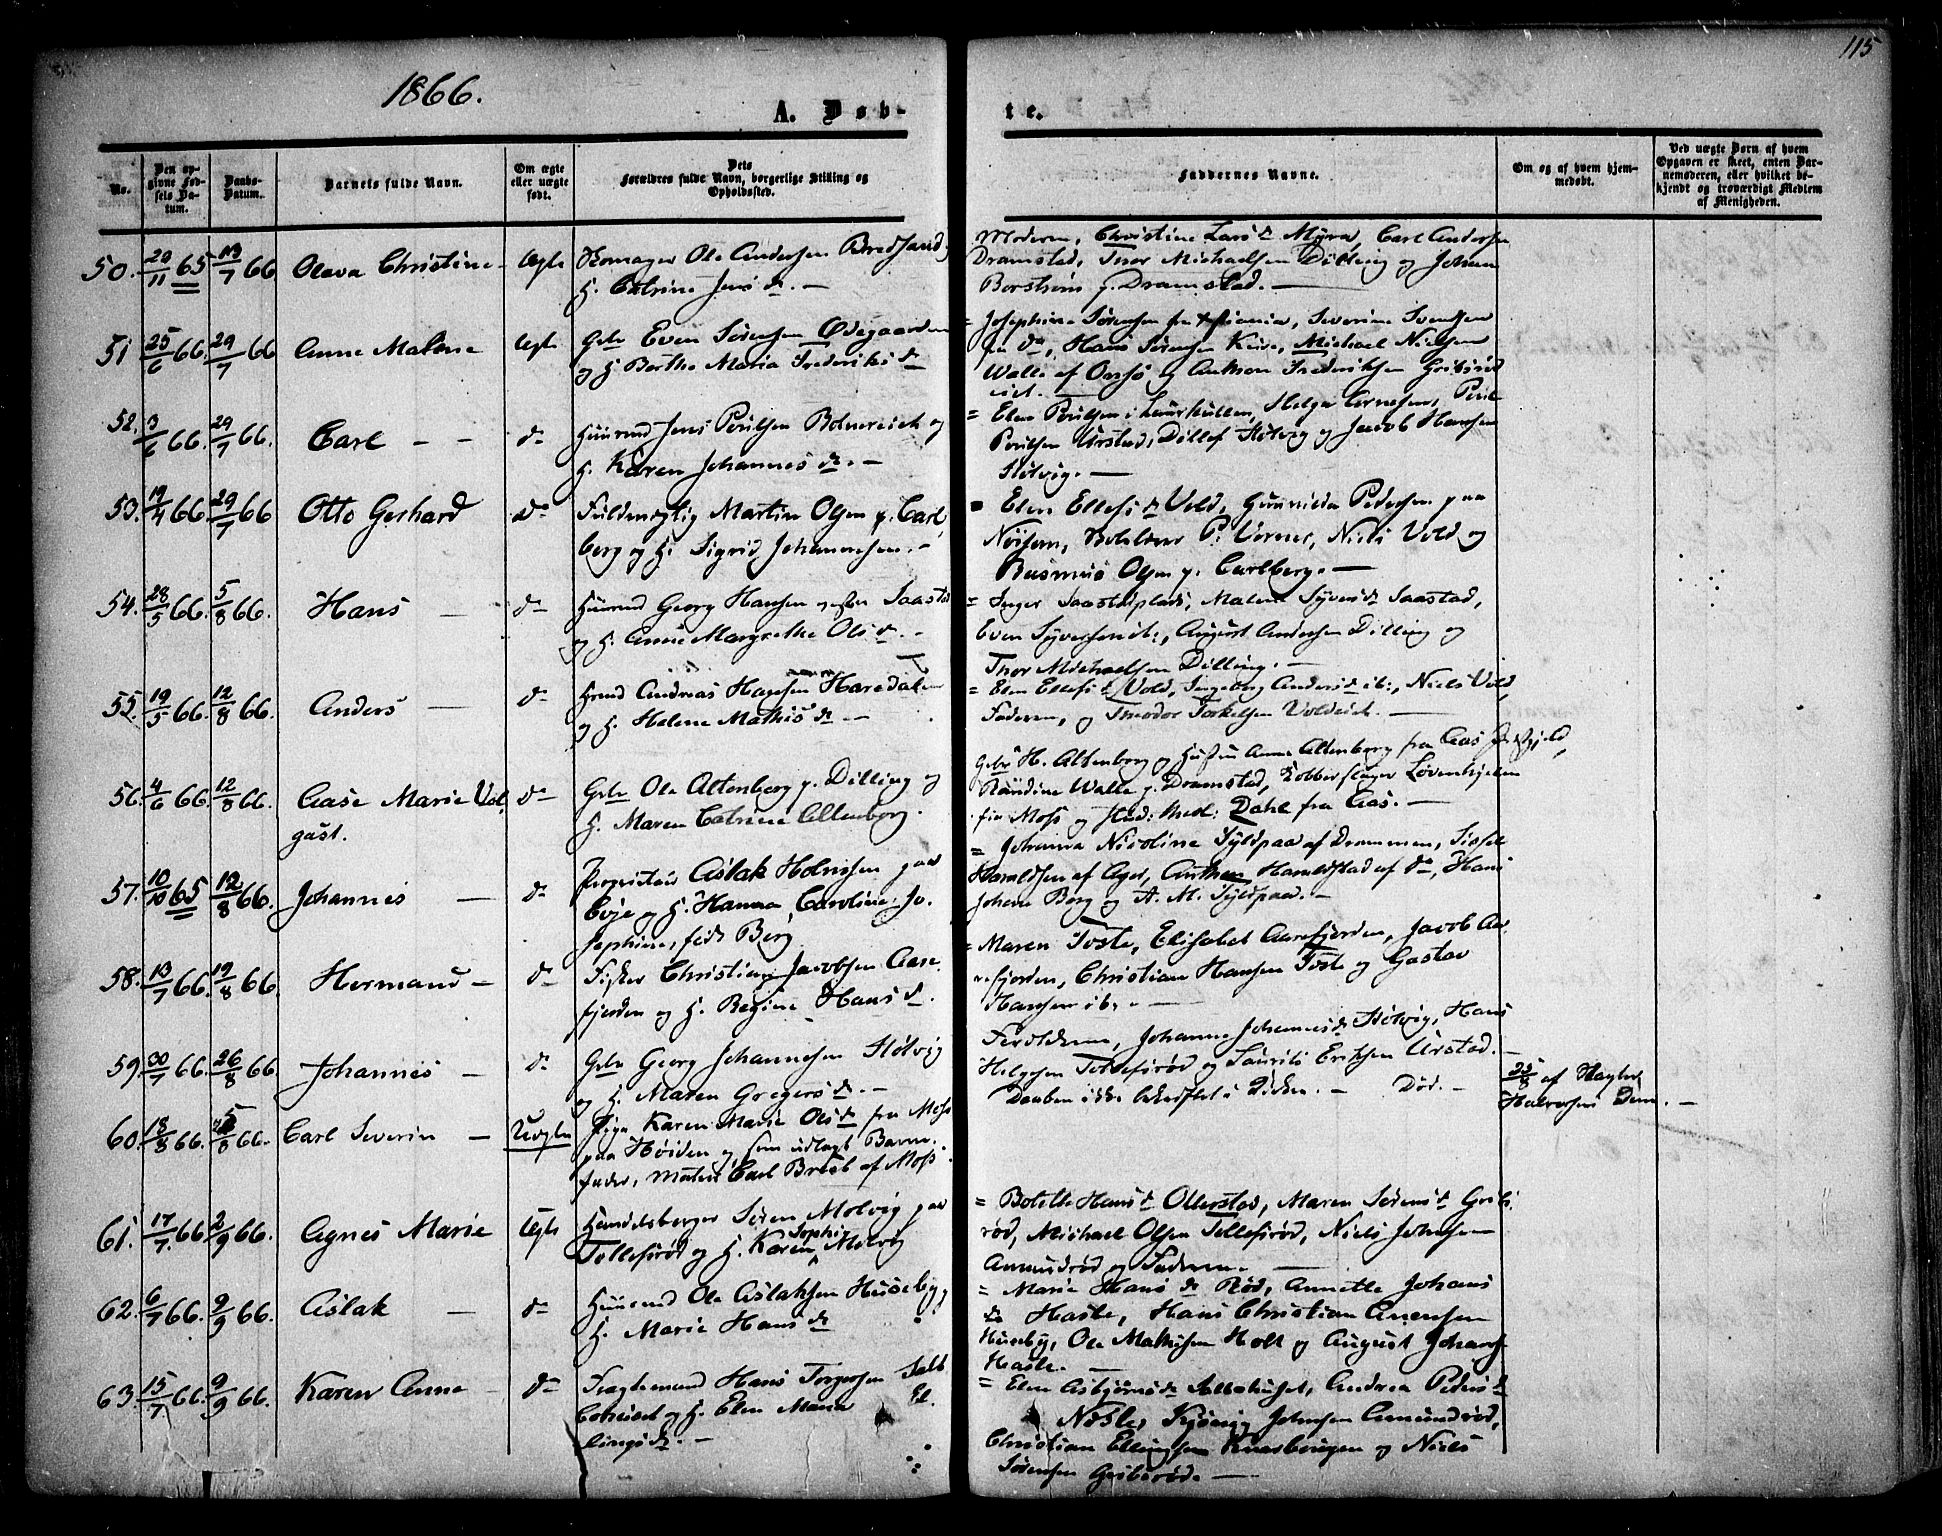 115
1866.
A. Døb-
te.
No.
Den op-
givne Fød-
sels Da-
tum.
Daabs-
Datum.
Barnets fulde Navn.
Om ægte
eller uægte
født.
Dets
Forældres fulde Navn, borgerlige Stilling og
Opholdssted.
Faddernes Navne.
Om og af hvem hjem-
medøbt.
Ved uægte Børn af hvem
Opgaven er skeet, enten Bar-
nemoderen, eller hvilket be-
kjendt og troværdigt Medlem
af Menigheden.
50. 20/11 65 13/7 66 Olava Christine Ægte Skomager Ole Andersen Bredsand og
H. Catrine Jens dr. —
Moderen, Christine Lars dr Myra, Carl Andersen
Dramstad, Thor Michaelsen Dilling og Johan
Borstrøm p. Dramstad. —
51 25/6 66. 29/7 66 Anne Malene Ægte Gbr Even Sørensen Ødegaarden
og H. Berthe Maria Frederiks dr
= Josephine Sørensen fra Xstiania, Severine Svendsen
fra do, Hans Sørensen Kure, Michael Nielsen
Walle af Onsø og Anthon Frederiksen Gribsrød
eiet. —
52. 3/6 66. 29/7 66. Carl — — do Huusmd Jens Poulsen Botnereiet og
H. Karen Johannes dr. —
= Elen Poulsen i Laurkullen, Helga Arnesen, Poul
Poulsen Urstad, Ditlef Støtvig og Jacob Hansen
Støtvig. —
53. 19/4 66 29/7 66 Otto Gerhard do Fuldmægtig Martin Olsen p. Carl
berg og H. Sigrid Johannesen. —
= Elen Ellefs dr Vold, Gunnilda Pedersen paa
Nøisom, P. Vorner, Niels Vold og
Rasmus Olsen p. Carlberg. —
54. 28/5 66. 5/8 66. Hans — do Huusmd Georg Hansen Saastad
og H. Anne Margrethe Ols dr. —
= Inger Saastadplads, Malene Syvers dr Saastad,
Even Syversen ib:, August Andersen Dilling og
Thor Michaelsen Dilling. —
55. 19/5 66 12/8 66. Anders — do Andreas Hansen Haredalen
og H. Helene Mathis dr —
= Elen Ellefs dr Vold, Ingeborg Anders dr ib:, Niels Vold,
Faderen, og Theodor Torkelsen Voldeiet. —
56. 4/6 66. 12/8 66. Aase Marie Vol
gast. do Gbr Ole Altenborg p. Dilling og
H. Maren Catrine Altenborg.
Gbr H. Altenborg og Hustru Anne Altenborg fra Aas Præstgjeld,
Randine Walle p. Dramstad, Kobberslager Løvenhjelm
fra Moss og Stud: Med: Dahl fra Aas. —
57. 10/10 65 12/8 66. Johannes — do Proprietair Aslak Holmsen paa
Evje og H. Hanna Caroline Jo
sephine, født Berg
= Johanna Nicoline Syldpaa af Drammen, Sissel
Haraldsen af Ager, Anthon Haraldstad af do, Hans
Johan Berg og A. M. Syldpaa. —
58. 13/7 66. 19/8 66. Hermand — do Fisker Christian Jacobsen Aare
fjorden og H. Regine Hans dr.
= Maren Toste, Elisabet Aarefjorden, Jacob Aa
refjorden, Christian Hansen Toste og Gustav
Hansen ib. —
59. 30/7 66. 26/8 66. Johannes — do Gbr Georg Johannesen Støtvig
og H. Maren Gregers dr. —
Forældrene, Johanne Johannes dr Støtvig, Hans
Helgesen Tollefsrød og Laurits Eriksen Urstad. —
60. 18/8 66. 66. Carl Severin — Uægte Pige Karen Marie Ols dr fra Moss
paa Høiden og som udlagt Barne
fader, Matros Carl af Moss.
Daaben ikke bekræftet i Kirken. — Død. —
25/8 af
Halvorsen
61. 17/7 66 2/9 66. Agnes Marie Ægte Handelsborger Søren Molvig paa
Tollefsrød og H. Karen Sophie Molvig
= Botelle Hans dr Ollerstad, Maren Sørens dr Gribs
rød, Michael Olsen Tollefsrød, Niels Johnsen
Amundrød og Faderen. —
62. 6/7 66. 9/9 66. Aslak — do Huusmd Ole Aslaksen Huseby og
H. Marie Hans dr
= Marie Hans dr Rød, Annette Johans
dr Hasle, Hans Christian Arnesen
Huseby, Ole Mathisen Holt og August Johans.
Hasle. —
63. 15/7 66. 9/9 66. Karen Anne do Fragtemand Hans Torgersen Salt
bothuset og H. Elen Maria El
lings dr. —
= Elen Asbjørns dr Saltbohuset, Andrea Peders dr
Nøsle, Kjønig Johnsen Amundrød,
Christian Ellingsen og Niels
Sørensen Gribsrød. —